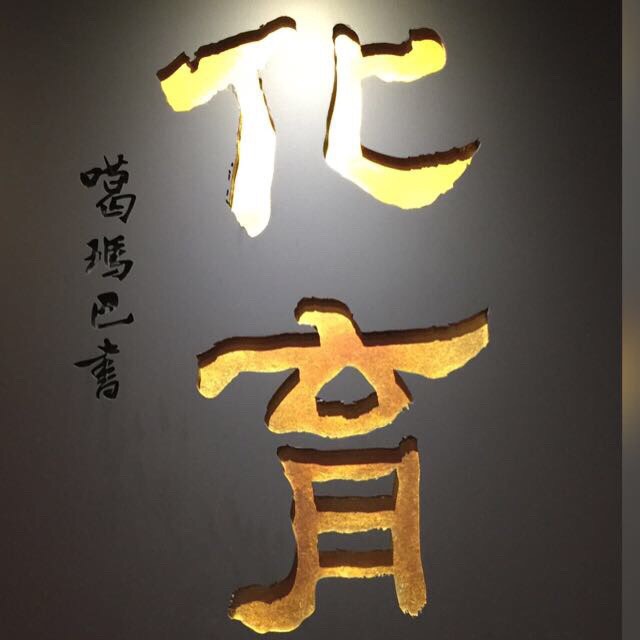 化育
噶瑪巴書